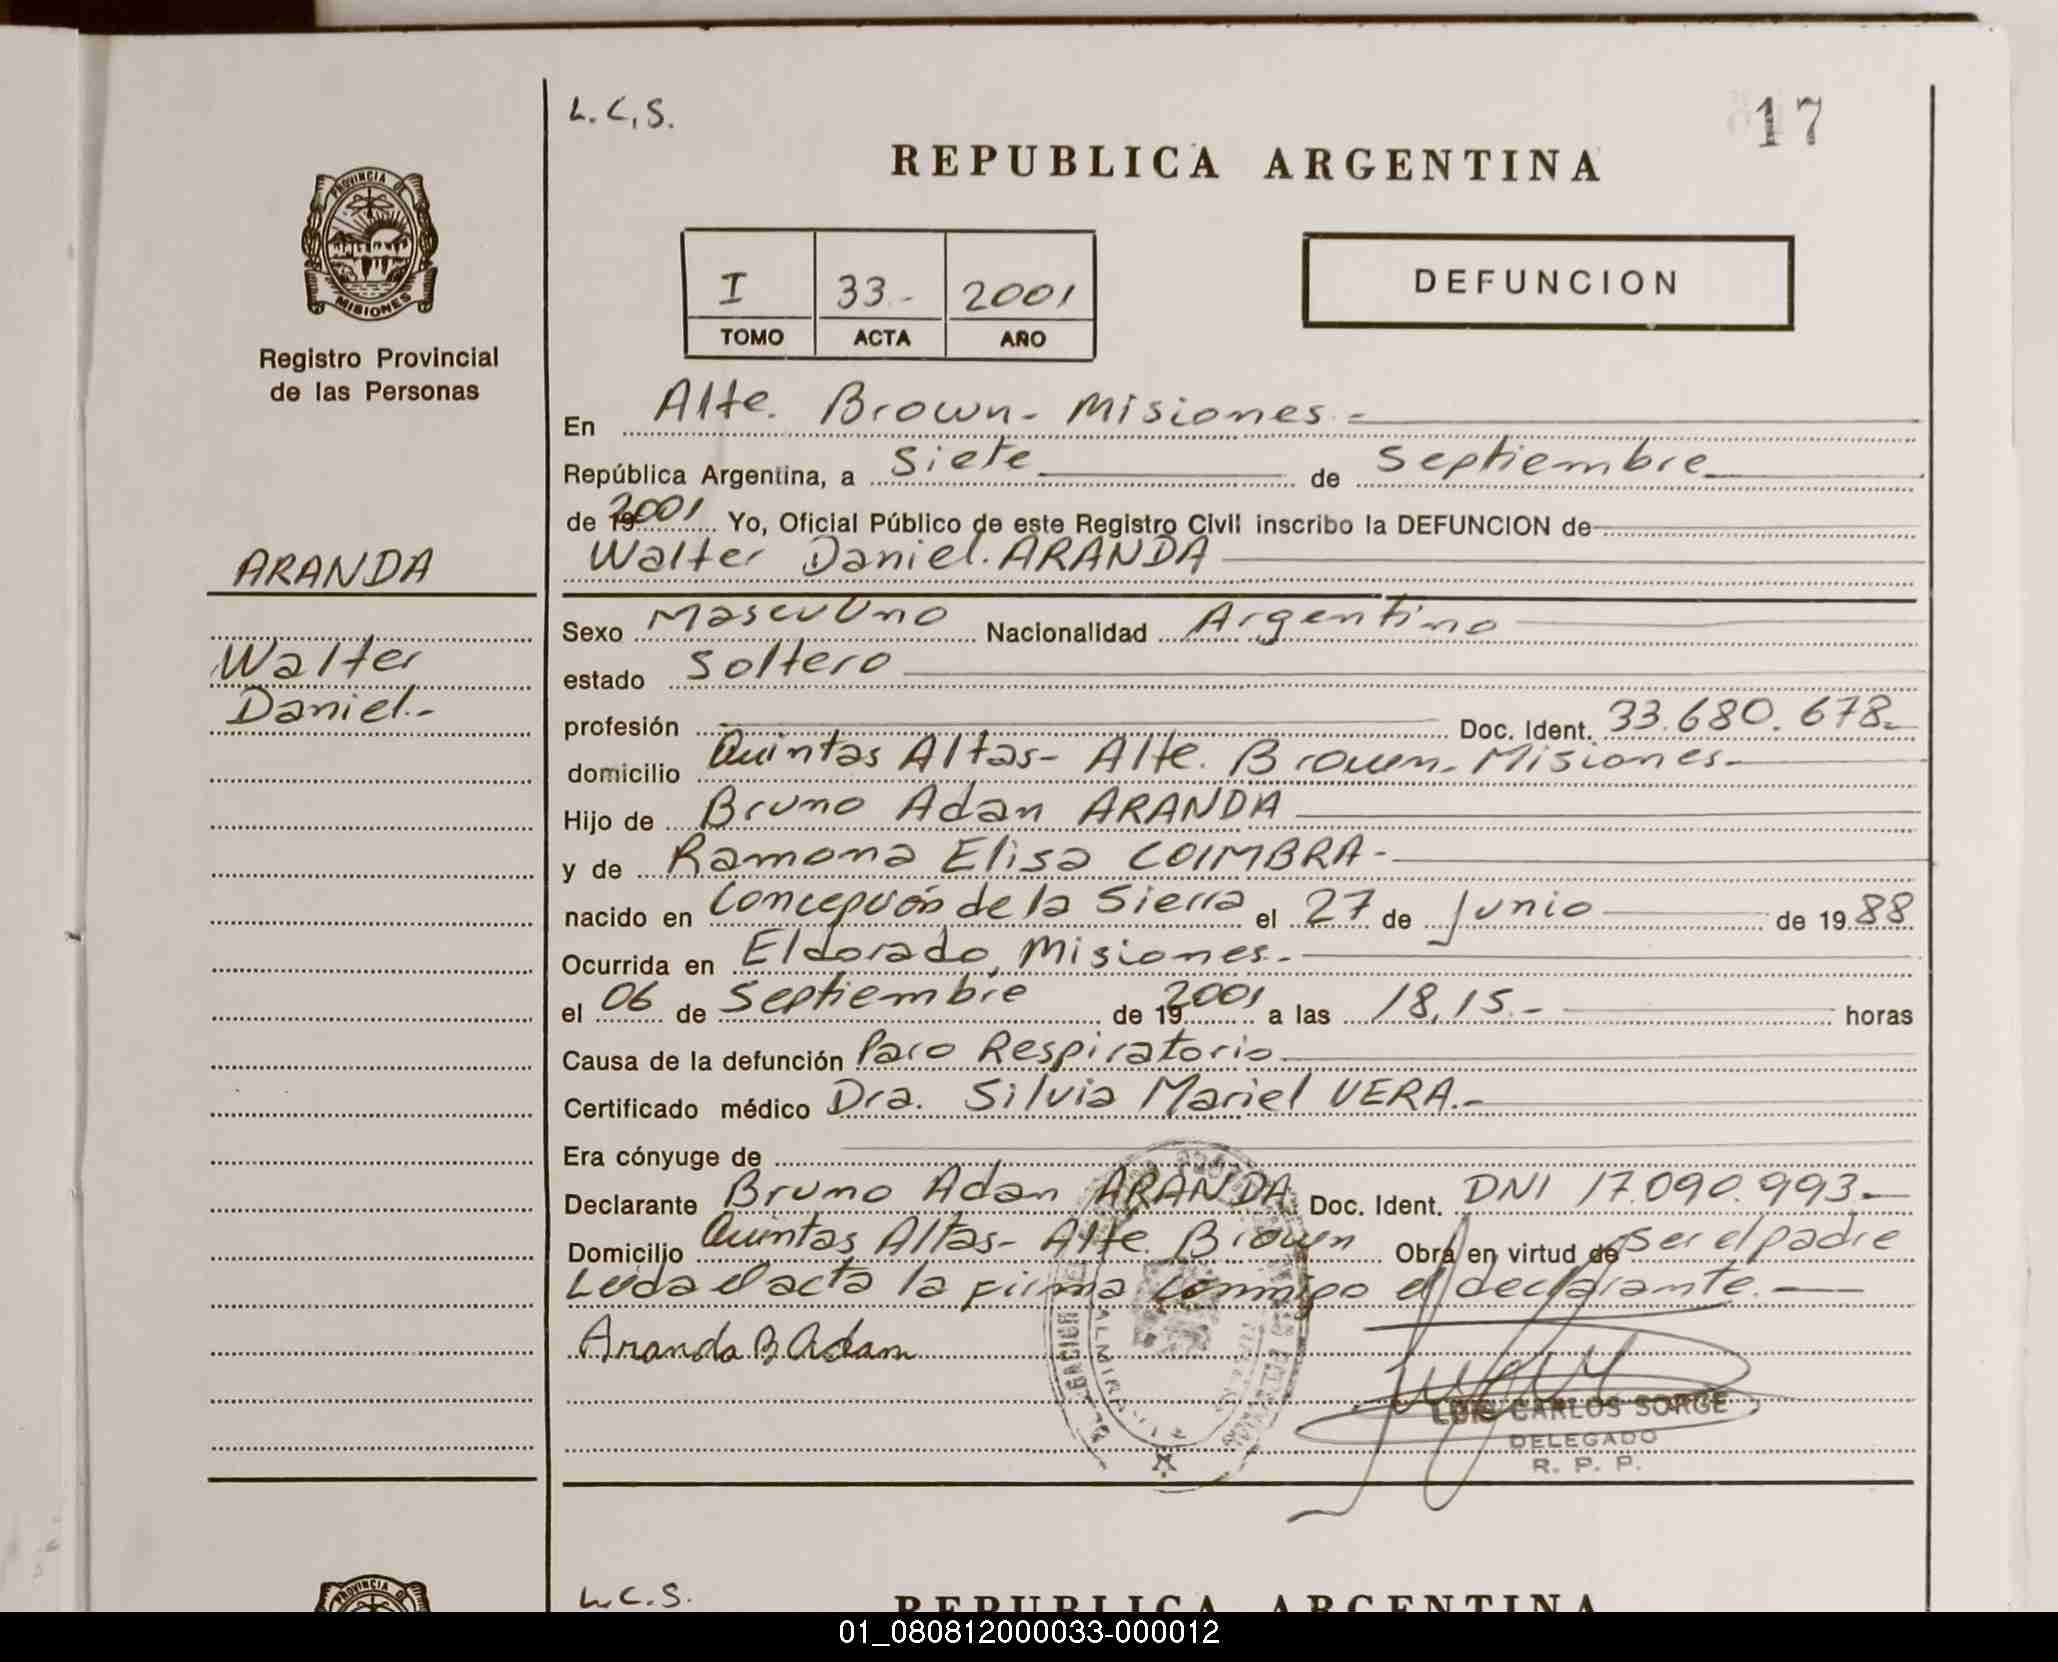 L.C.S.
17
REPUBLICA ARGENTINA
PROVINCIA DE
MISIONES
Registro Provincial
de las Personas
I 33.- 2001
TOMO ACTA AÑO
DEFUNCION
En Alte. Brown- Misiones.-
República Argentina, a Siete de Septiembre
de 19 2001 Yo, Oficial Público de este Registro Civil inscribo la DEFUNCION de
Walter Daniel. ARANDA
ARANDA
Walter
Daniel.-
Sexo Masculino Nacionalidad Argentino
estado Soltero
profesión Doc. Ident. 33.680.678.-
domicilio Quintas Altas- Alte. Brown- Misiones.-
Hijo de Bruno Adan ARANDA
y de Ramona Elisa COIMBRA-
nacido en Concepción de la Sierra el 27 de Junio de 19 88
Ocurrida en Eldorado, Misiones.-
el 06 de Septiembre de 19 2001 a las 18,15.- horas
Causa de la defunción Paro Respiratorio
Certificado médico Dra. Silvia Mariel VERA.-
Era cónyuge de
Declarante Bruno Adan ARANDA Doc. Ident. DNI 17.090.993.-
Domicilio Quintas Altas- Alte. Brown Obra en virtud de Ser el padre
Leida el acta la firma conmigo el declarante.-
Aranda B Adam
LUIS CARLOS SORGE
DELEGADO
R. P. P.
L.C.S.
PROVINCIA DE
REPUBLICA ARGENTINA
01_080812000033-000012